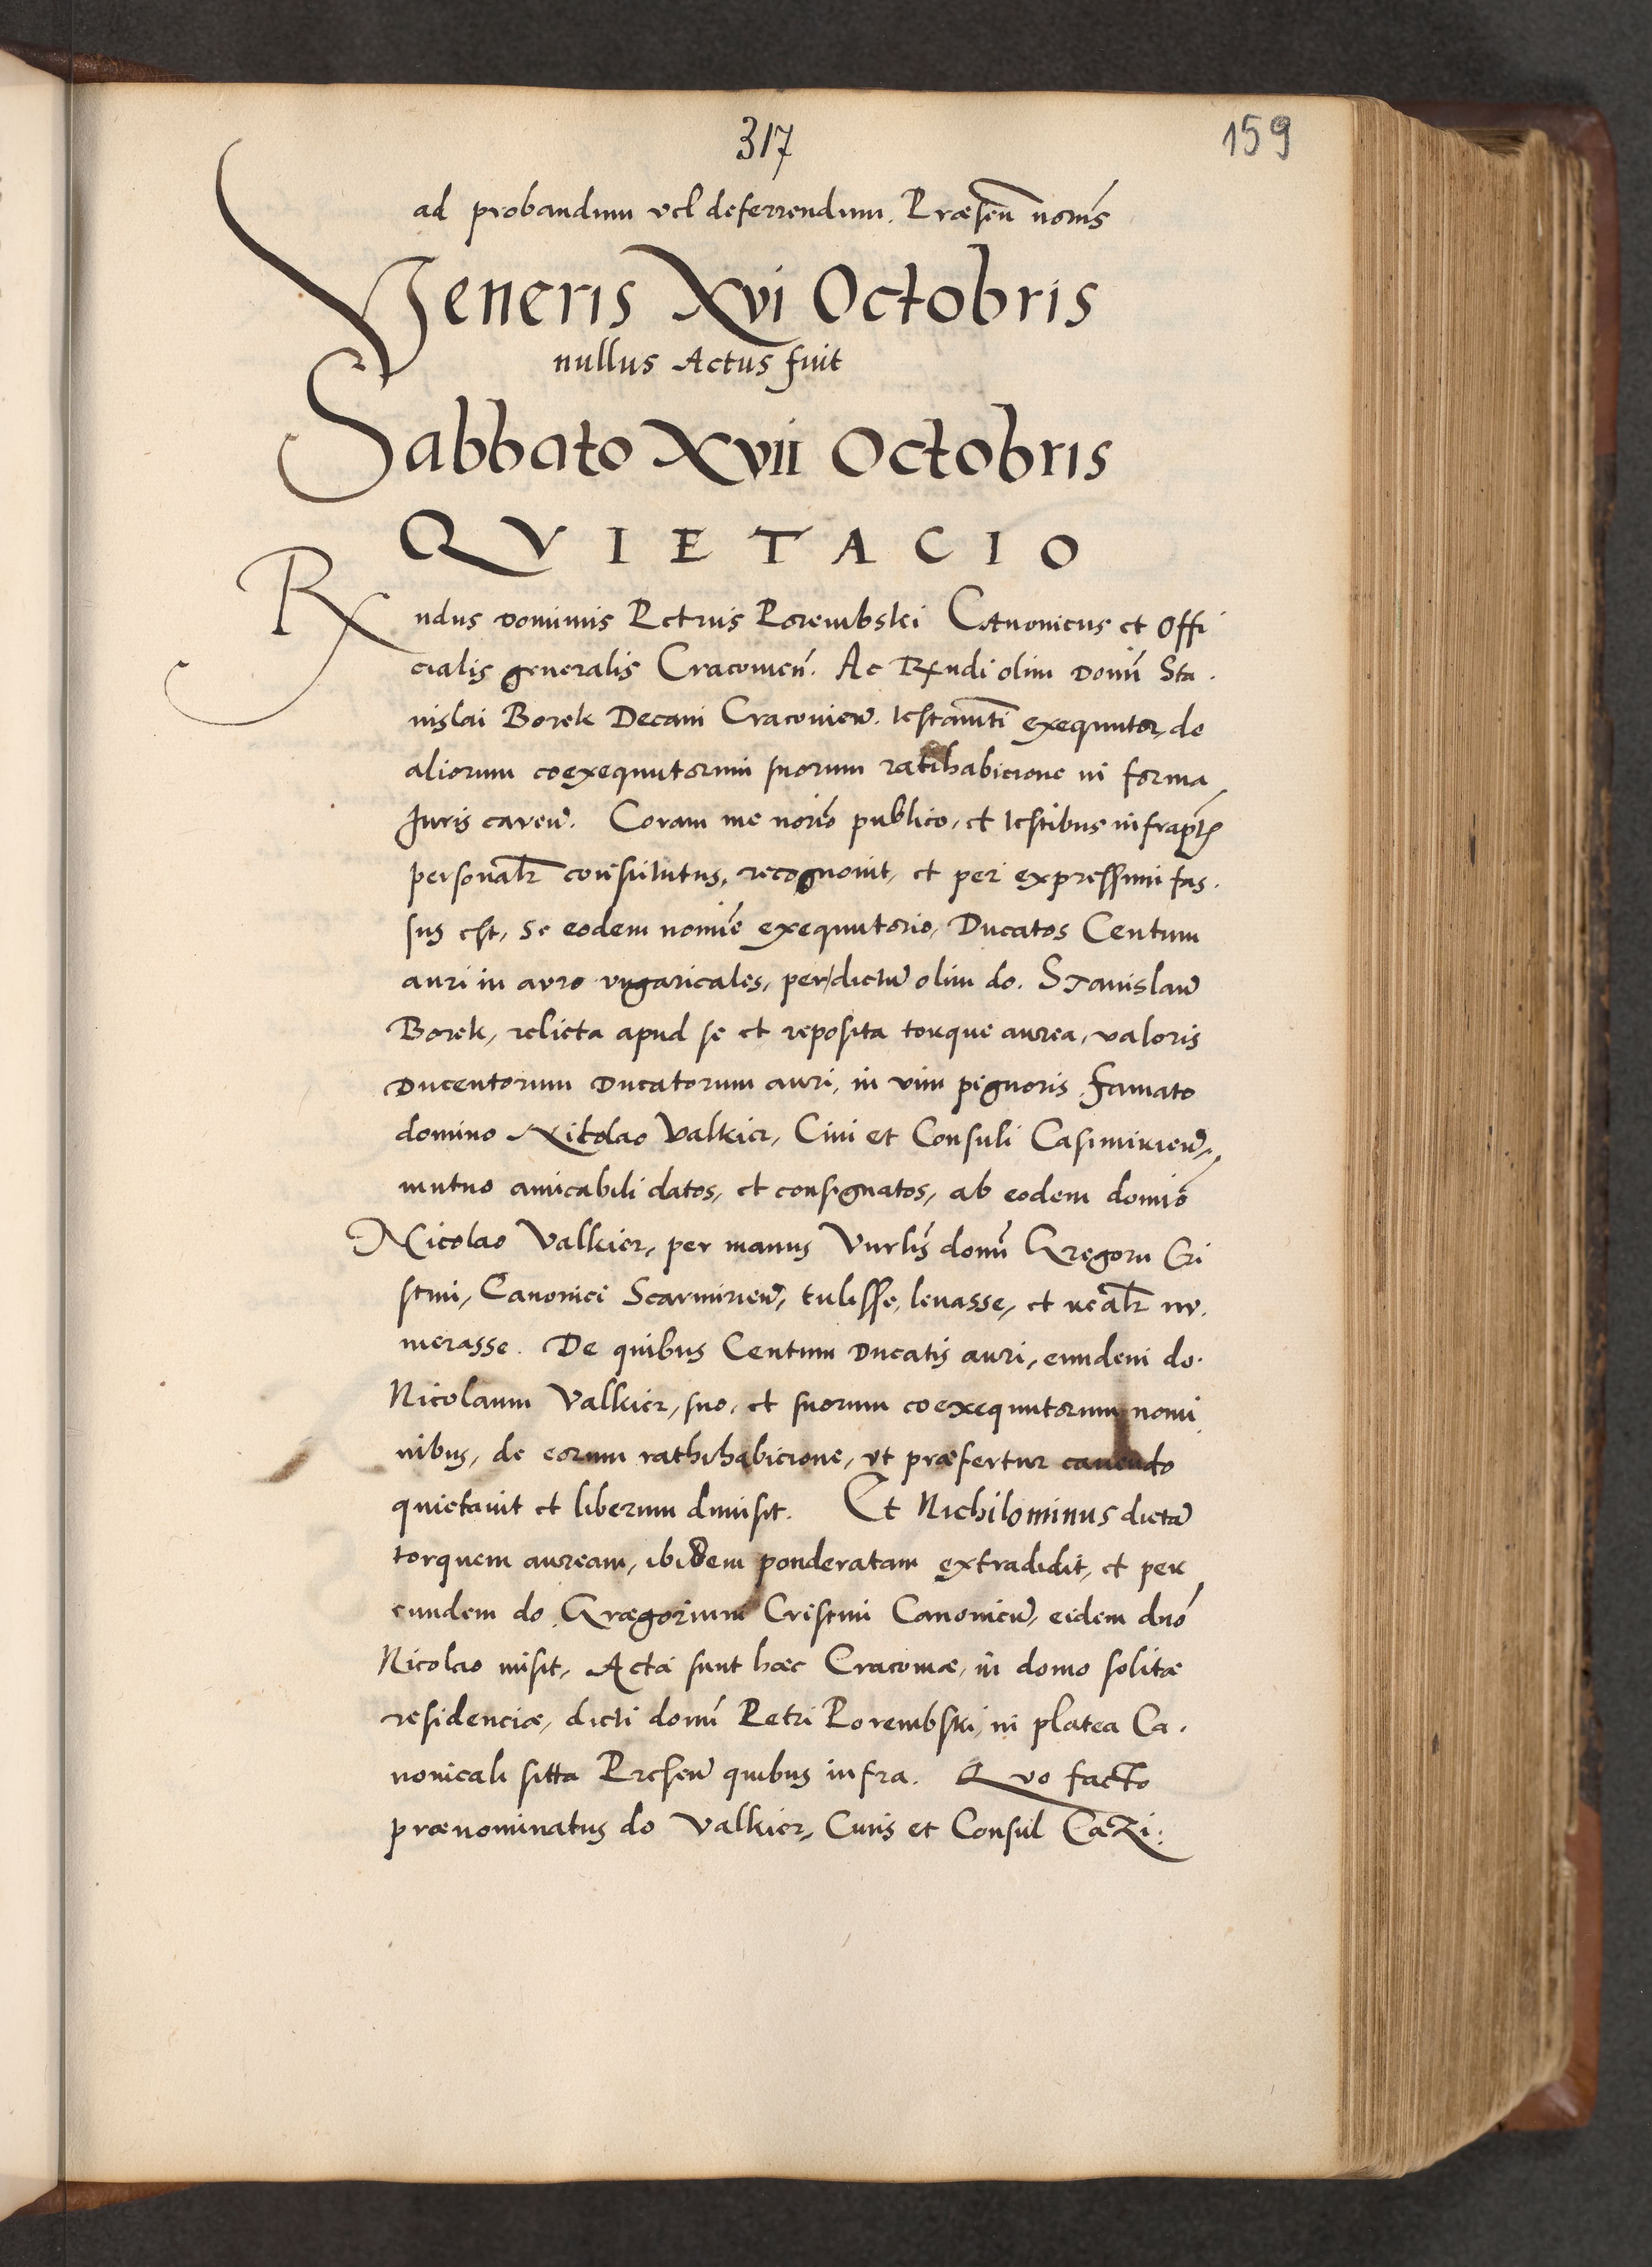 317
159
ad probandum vel deferrendum. Præsen̄ notn̄s
Veneris Xvi Octobris
nullus Actus fuit
Sabbato Xvii Octobris
QVIETACIO
Rndus dominus Petrus Porembski Canonicus et Offi
cialis generalis Cracovien̄. Ac Rndi olim domn̄ Sta.
nislai Borek Decani Cracovien̄. testamn̄ti exequutor, de
aliorum coexequutorum suorum ratihabicione in forma
Juris caven̄. Coram me notrio publico, et testibus infrapt̄s
personalr̄ constitutus, recognovit, et per expressum fas.
sus est, se eodem nomīe exequutorio, Ducatos Centum
auri in auro vngaricales, per dictū olim do. Stanislaū
Borek, relicta apud se et reposita torque aurea, valoris
Ducentorum Ducatorum auri, in vim pignoris, famato
domino Nicolao Valkier, Civi et Consuli Casimirien̄,
mutuo amicabili datos, et consignatos, ab eodem domīo
Nicolao Valkier, per manus Vnrlis domn̄ Gregorii Cri
stini, Canonici Scarmirien̄, tulisse, levasse, et realr̄ nu.
merasse. De quibus Centum Ducatis auri, eundem do.
Nicolaum Valkier, suo, et suorum coexequutorum nomi
nibus, de eorum rathihabicione, vt præfertur cavendo
quietavit et liberum dimisit. Et Nichilominus dictā
torquem auream, ibidem ponderatam extradidit, et per
eundem do. Grægorium Cristini Canonicū, eidem dnō
Nicolao misit, Acta sunt hæc Cracoviæ, in domo solitæ
residenciæ, dicti domn̄ Petri Porembski, in platea Ca.
nonicali sitta Præsen̄ quibus infra. Quo facto
prænominatus do Valkier, Civis et Consul Cazi.